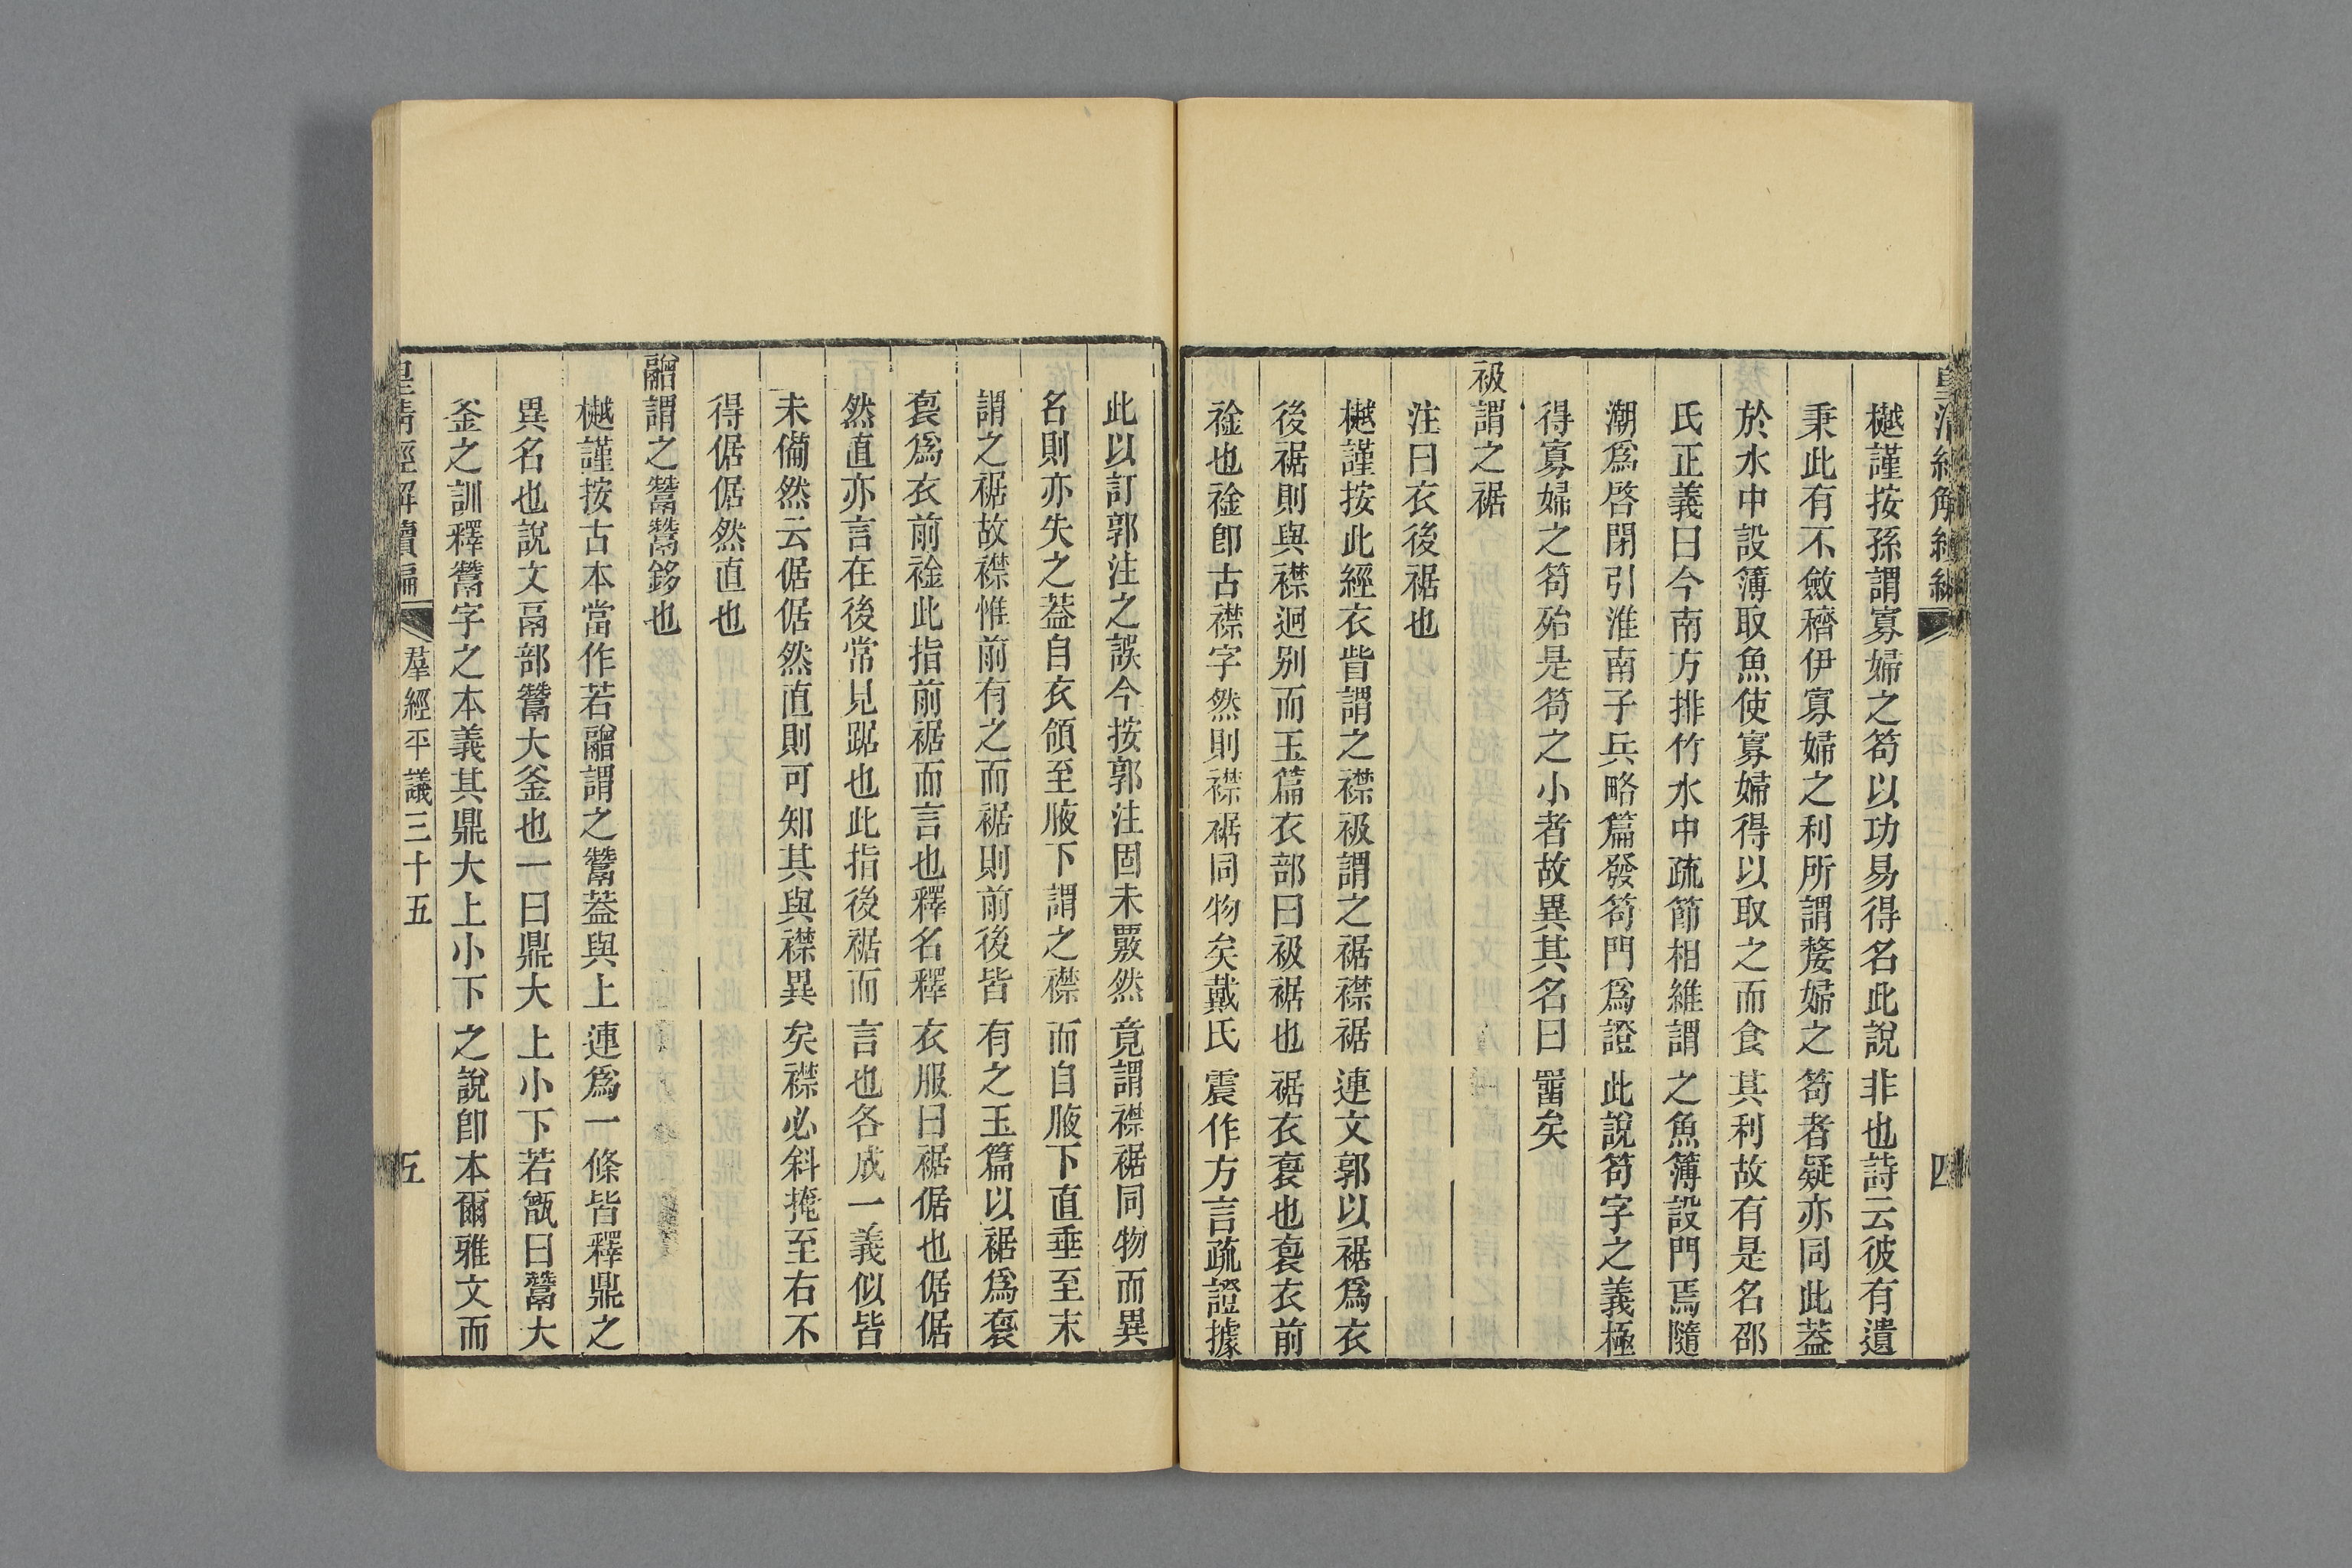 樾謹按孫謂寡婦之笱以功易得名此說非也詩云彼有遺
秉此有不斂穧伊寡婦之利所謂嫠婦之笱者疑亦同此蓋
於水中設簿取魚使寡婦得以取之而食其利故有是名邵
氏正義曰今南方排竹水中疏節相維謂之魚簿設門焉隨
潮爲啓閉引淮南子兵略篇發笱門爲證此說笱字之義極
得寡婦之笱殆是笱之小者故異其名曰罶矣
衱謂之裾
注曰衣後裾也
樾謹按此經衣眥謂之襟衱謂之裾襟裾連文郭以裾爲衣
後裾則與襟迥别而玉篇衣部曰衱裾也裾衣裒也裒衣前
襘也襘卽古襟字然則襟裾同物矣戴氏震作方言疏證據
此以訂郭注之誤今按郭注固未覈然竟謂襟裾同物而異
名則亦失之葢自衣領至腋下謂之襟而自腋下直垂至末
謂之裾故襟惟前有之而裾則前後皆有之玉篇以裾爲裒
裒爲衣前䘳此指前裾而言也釋名釋衣服曰裾倨也倨倨
然直亦言在後常見踞也此指後裾而言也各成一義似皆
未備然云倨倨然直則可知其與襟異矣襟必斜掩至右不
得倨倨然直也
䰝謂之鬵鬵鉹也
樾謹按古本當作若䰝謂之鬵葢與上連爲一條皆釋鼎之
異名也說文鬲部鬵大釜也一曰鼎大上小下若甑曰鬵大
釜之訓釋鬵字之本義其鼎大上小下之說卽本爾雅文而
皇清經解續編
羣經平議三十五
五
四